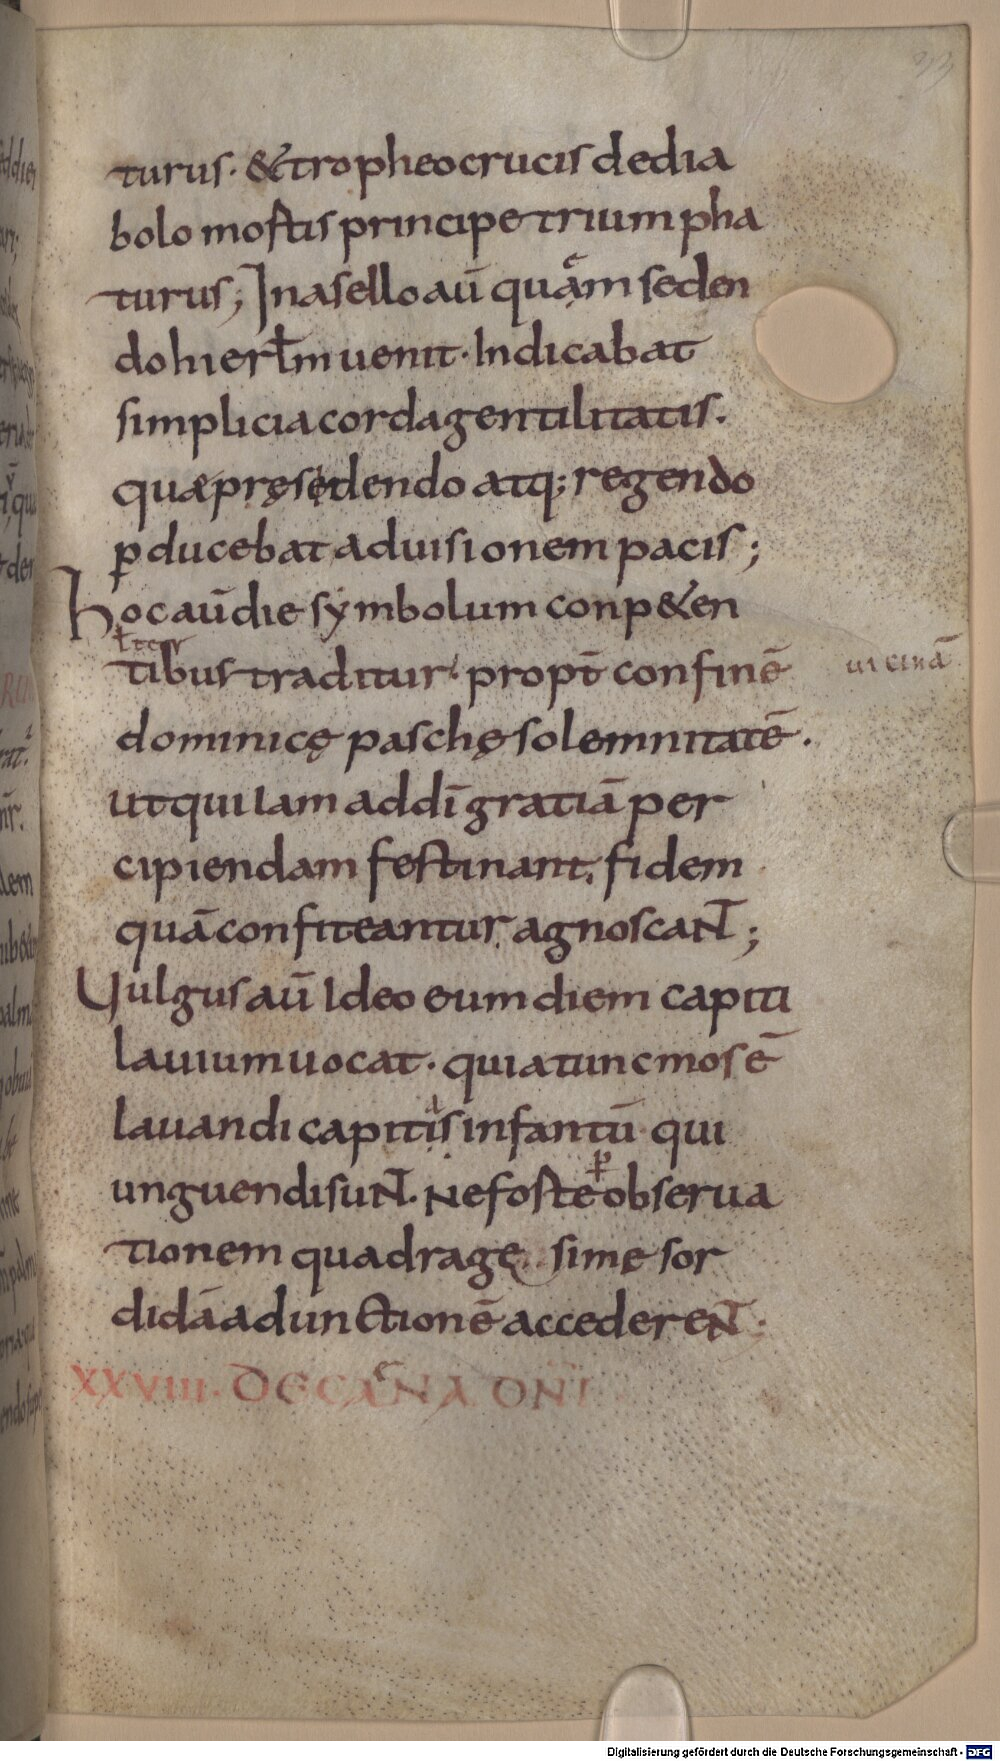 turus· &tropheo crucis dedia
bolo mostis principe trium pha
turus; In asello aū quǎm seden
do hierłm uenit· Indicabat
simplicia corda gentilitatis.
quae pręsędendo atq; regendo
ꝑducebat aduisionem pacis;
hoc aū die symbolum conp&en
tibus traditur· propt̄ confinē
uicinā
dominicę paschę solemnitatē.
ut qui iam addī gratiā per
cipiendam festinant, fidem
quā confiteantur agnoscaNT;
Uulgus aū Ideo eum diem capiti
lauium uocat· quia tunc mos ē
lauandi capitis infantū qui
unguendi suNT. Ne foste obserua
tionem quadrage simę sor
didā adunctionē accedereNT·
XXVIII· DE CAENA DN̄I
Digitalisierung gefördert durch die Deutsche Forschungsgemeinschaft - DFG